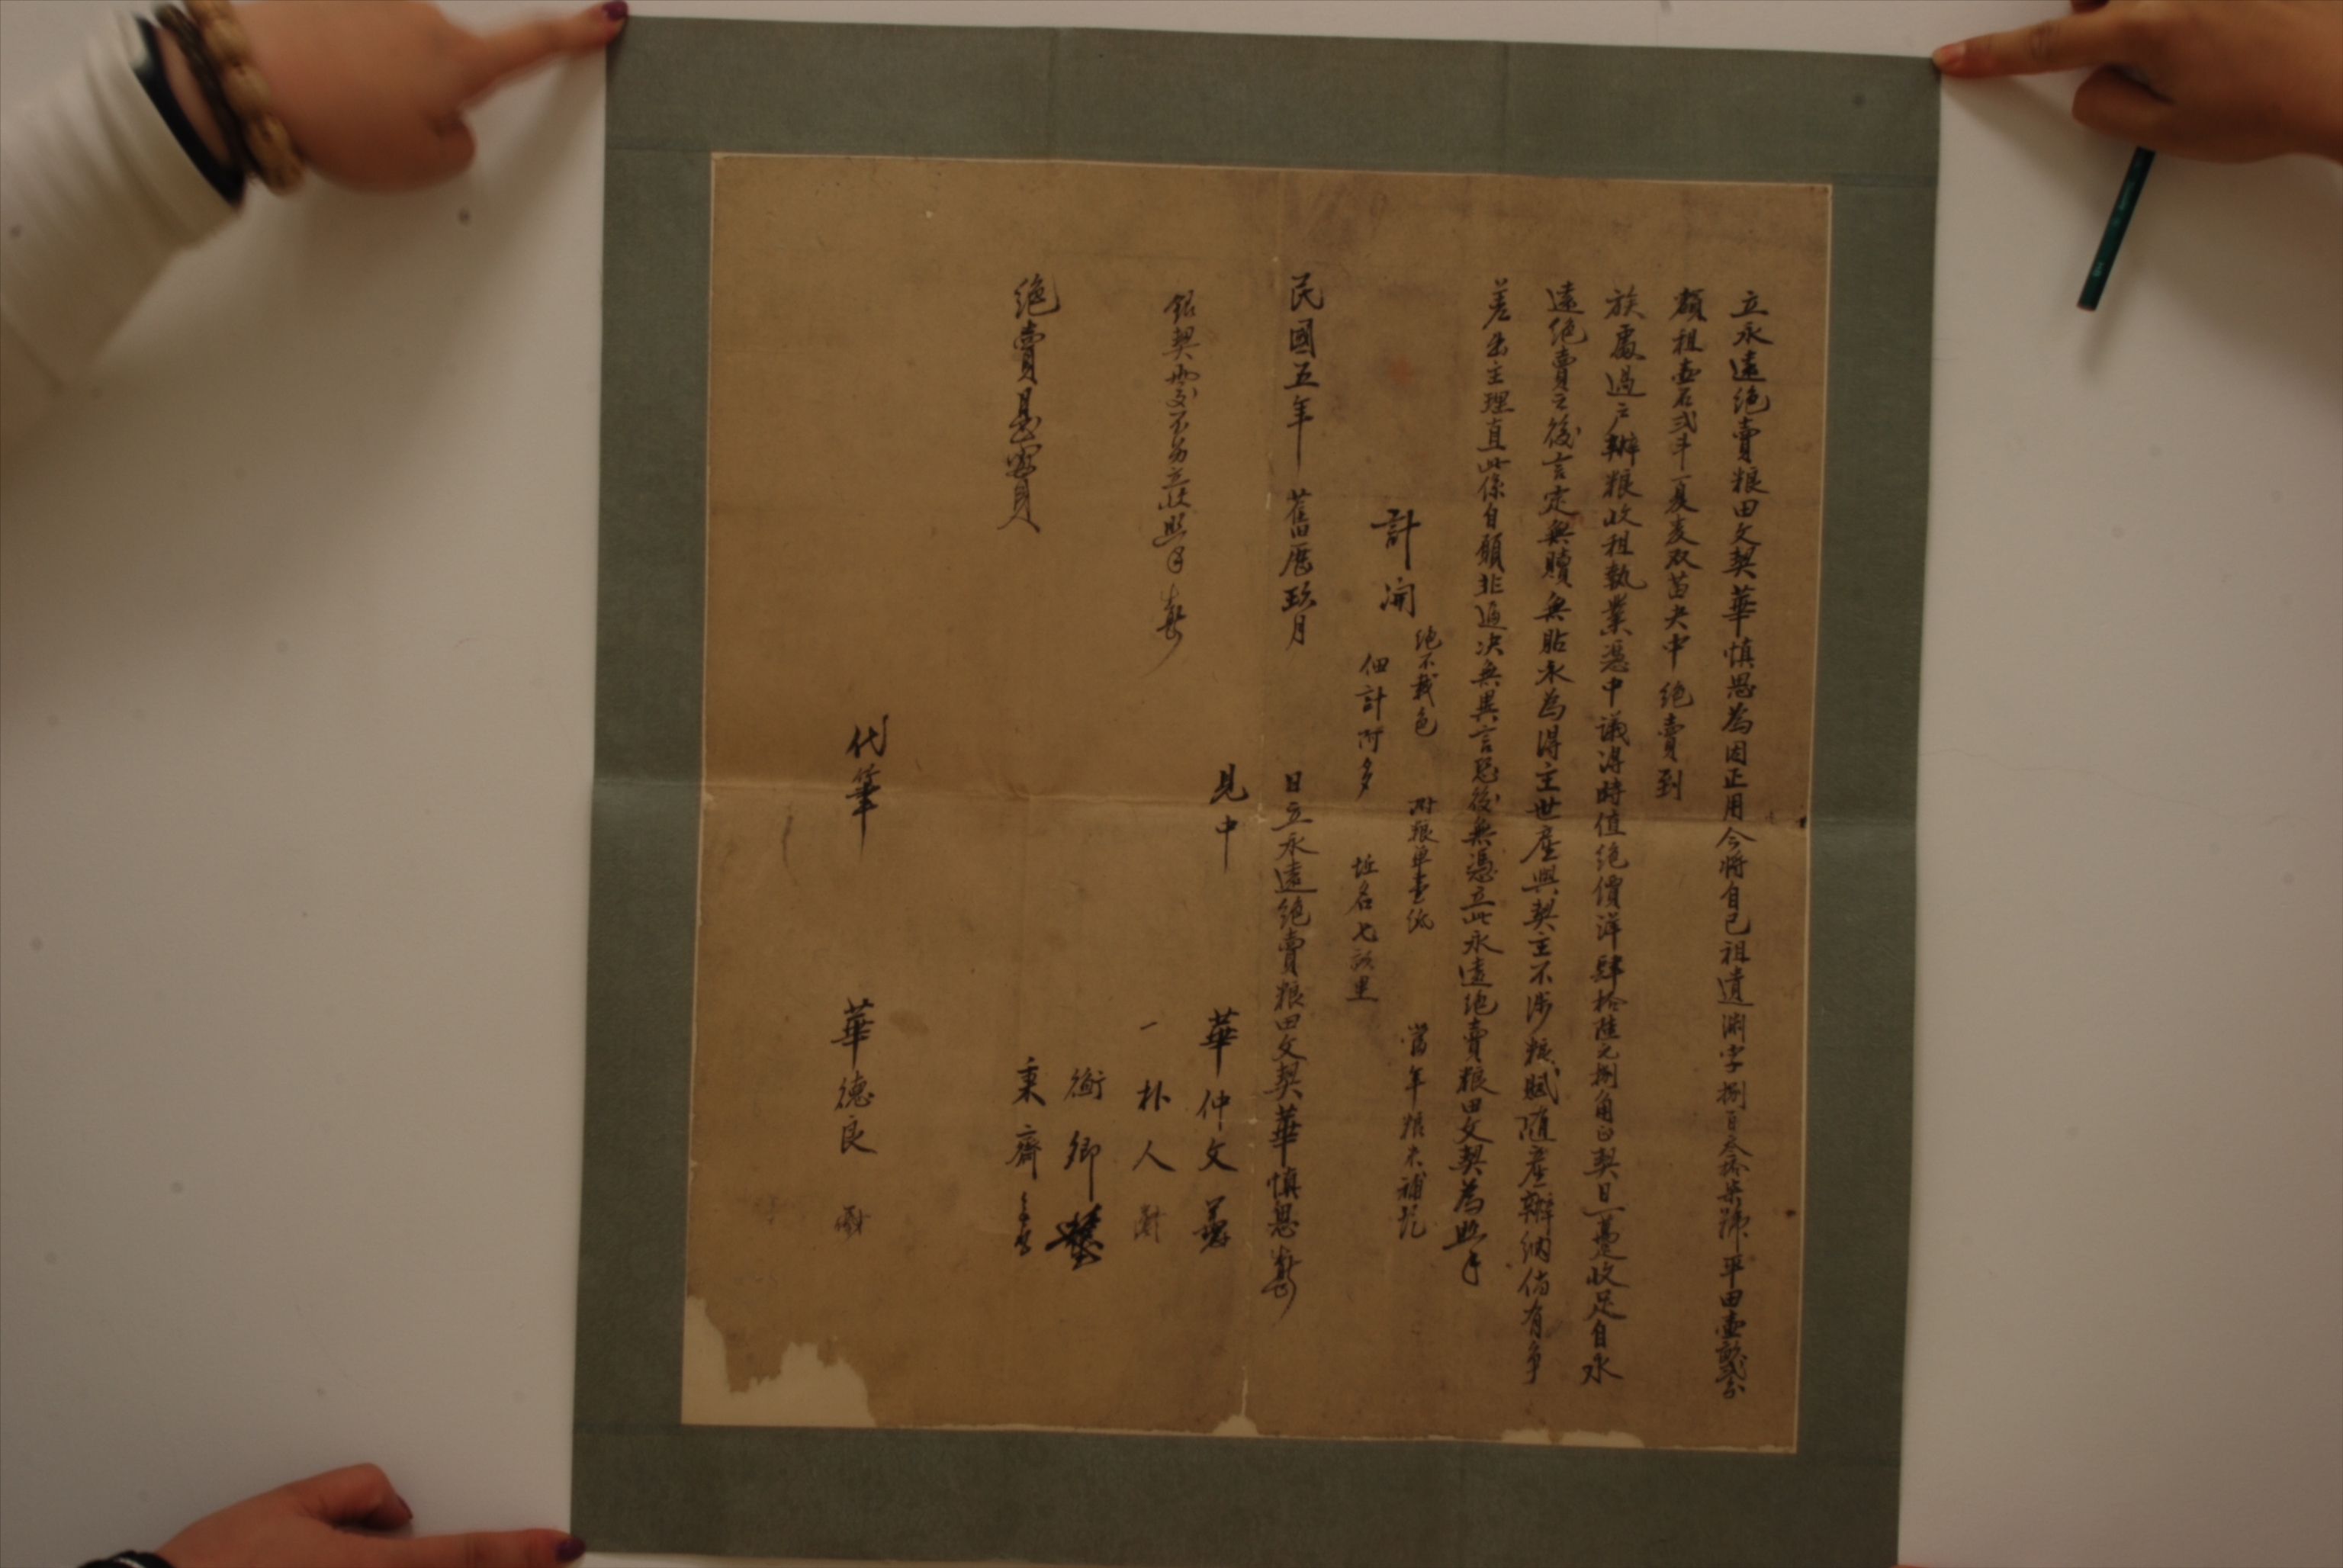 立永遠絕賣粮田文契華慎思為因正用今將自己祖遺渊字捌百叁拾柒號平田壹畝弍分
額租壹石弍斗一夏麦双苗夫中絕賣到
族處過户辦粮收租執業憑中議淂時值絕價洋肆拾陆元捌角正契日一躉收足自永
遠絕賣之後言定無贖無貼永為淂主世産與契主不涉粮賦隨産辦納倘有争
差出主理直此係自願非逼决無異言恐後無憑立此永遠絕賣粮田文契為照
計開
絕不栽色 附粮单壹纸 當年粮未補訖
佃計附多 坵名七畝里
民國五年 舊歷玖月 日立永遠絕賣粮田文契華慎思
見中 華仲文
銀契两交不另立收照
一 朴人
衡卿
絕賣是寔
秉齊
代筆 華德良